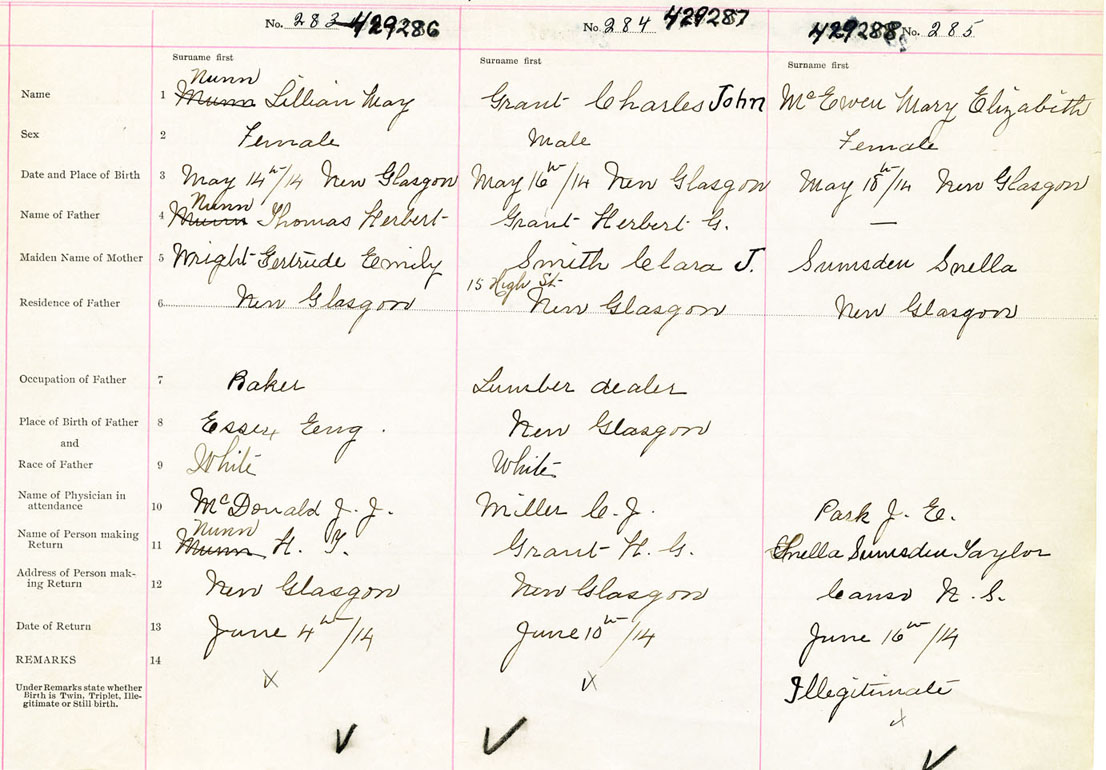 No. 283 429286 No. 284 429287 429288 No. 285
Surname first Surname first Surname first
Nunn
Name 1 Munn Lillian May Grant Charles John McEwen Mary Elizabeth
Sex 2 Female Male Female
Date and Place of Birth 3 May 14th/14 New Glasgow May 16th/14 New Glasgow May 18th/14 New Glasgow
Nunn
Name of Father 4 Munn Thomas Herbert Grant Herbert G. —
Maiden Name of Mother 5 Wright Gertrude Emily Smith Clara J. Sumsden Snella
15 High St
Residence of Father 6 New Glasgow New Glasgow New Glasgow
Occupation of Father 7 Baker Lumber dealer
Place of Birth of Father 8 Essex Eng. New Glasgow
and
Race of Father 9 White White
Name of Physician in
attendance 10 McDonald J. J. Miller C. J. Park J. E.
Nunn
Name of Person making
Return 11 Munn H. T. Grant H. G. Snella Sumsden Taylor
Address of Person mak-
ing Return 12 New Glasgow New Glasgow Canso N.S.
Date of Return 13 June 4th/14 June 10th/14 June 16th/14
REMARKS 14 x x
Under Remarks state whether
Birth is Twin, Triplet, Ille-
gitimate or Still birth. Illegitimate
x